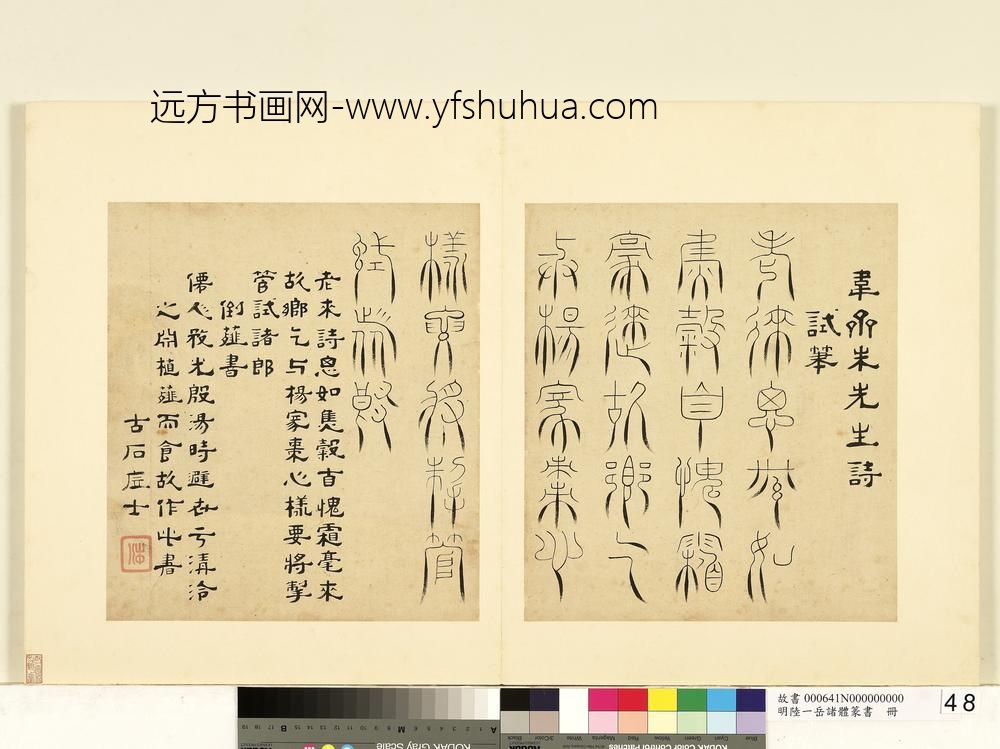 远方书画网-www.yfshuhua.com
韋齋朱先生詩
試筆
老來詩思如
焦穀自愧霜
毫來故鄉乞
与楊家棗心
樣要將掣管
試諸郎
老來詩思如焦穀自愧霜毫來
故鄉乞与楊家棗心樣要將掣
管試諸郎
倒薤書
僊人務光殷湯時避世于清泠
之淵植薤而食故作此書
古石居士
故書 000641N000000000
明陸一岳諸體篆書 冊
48